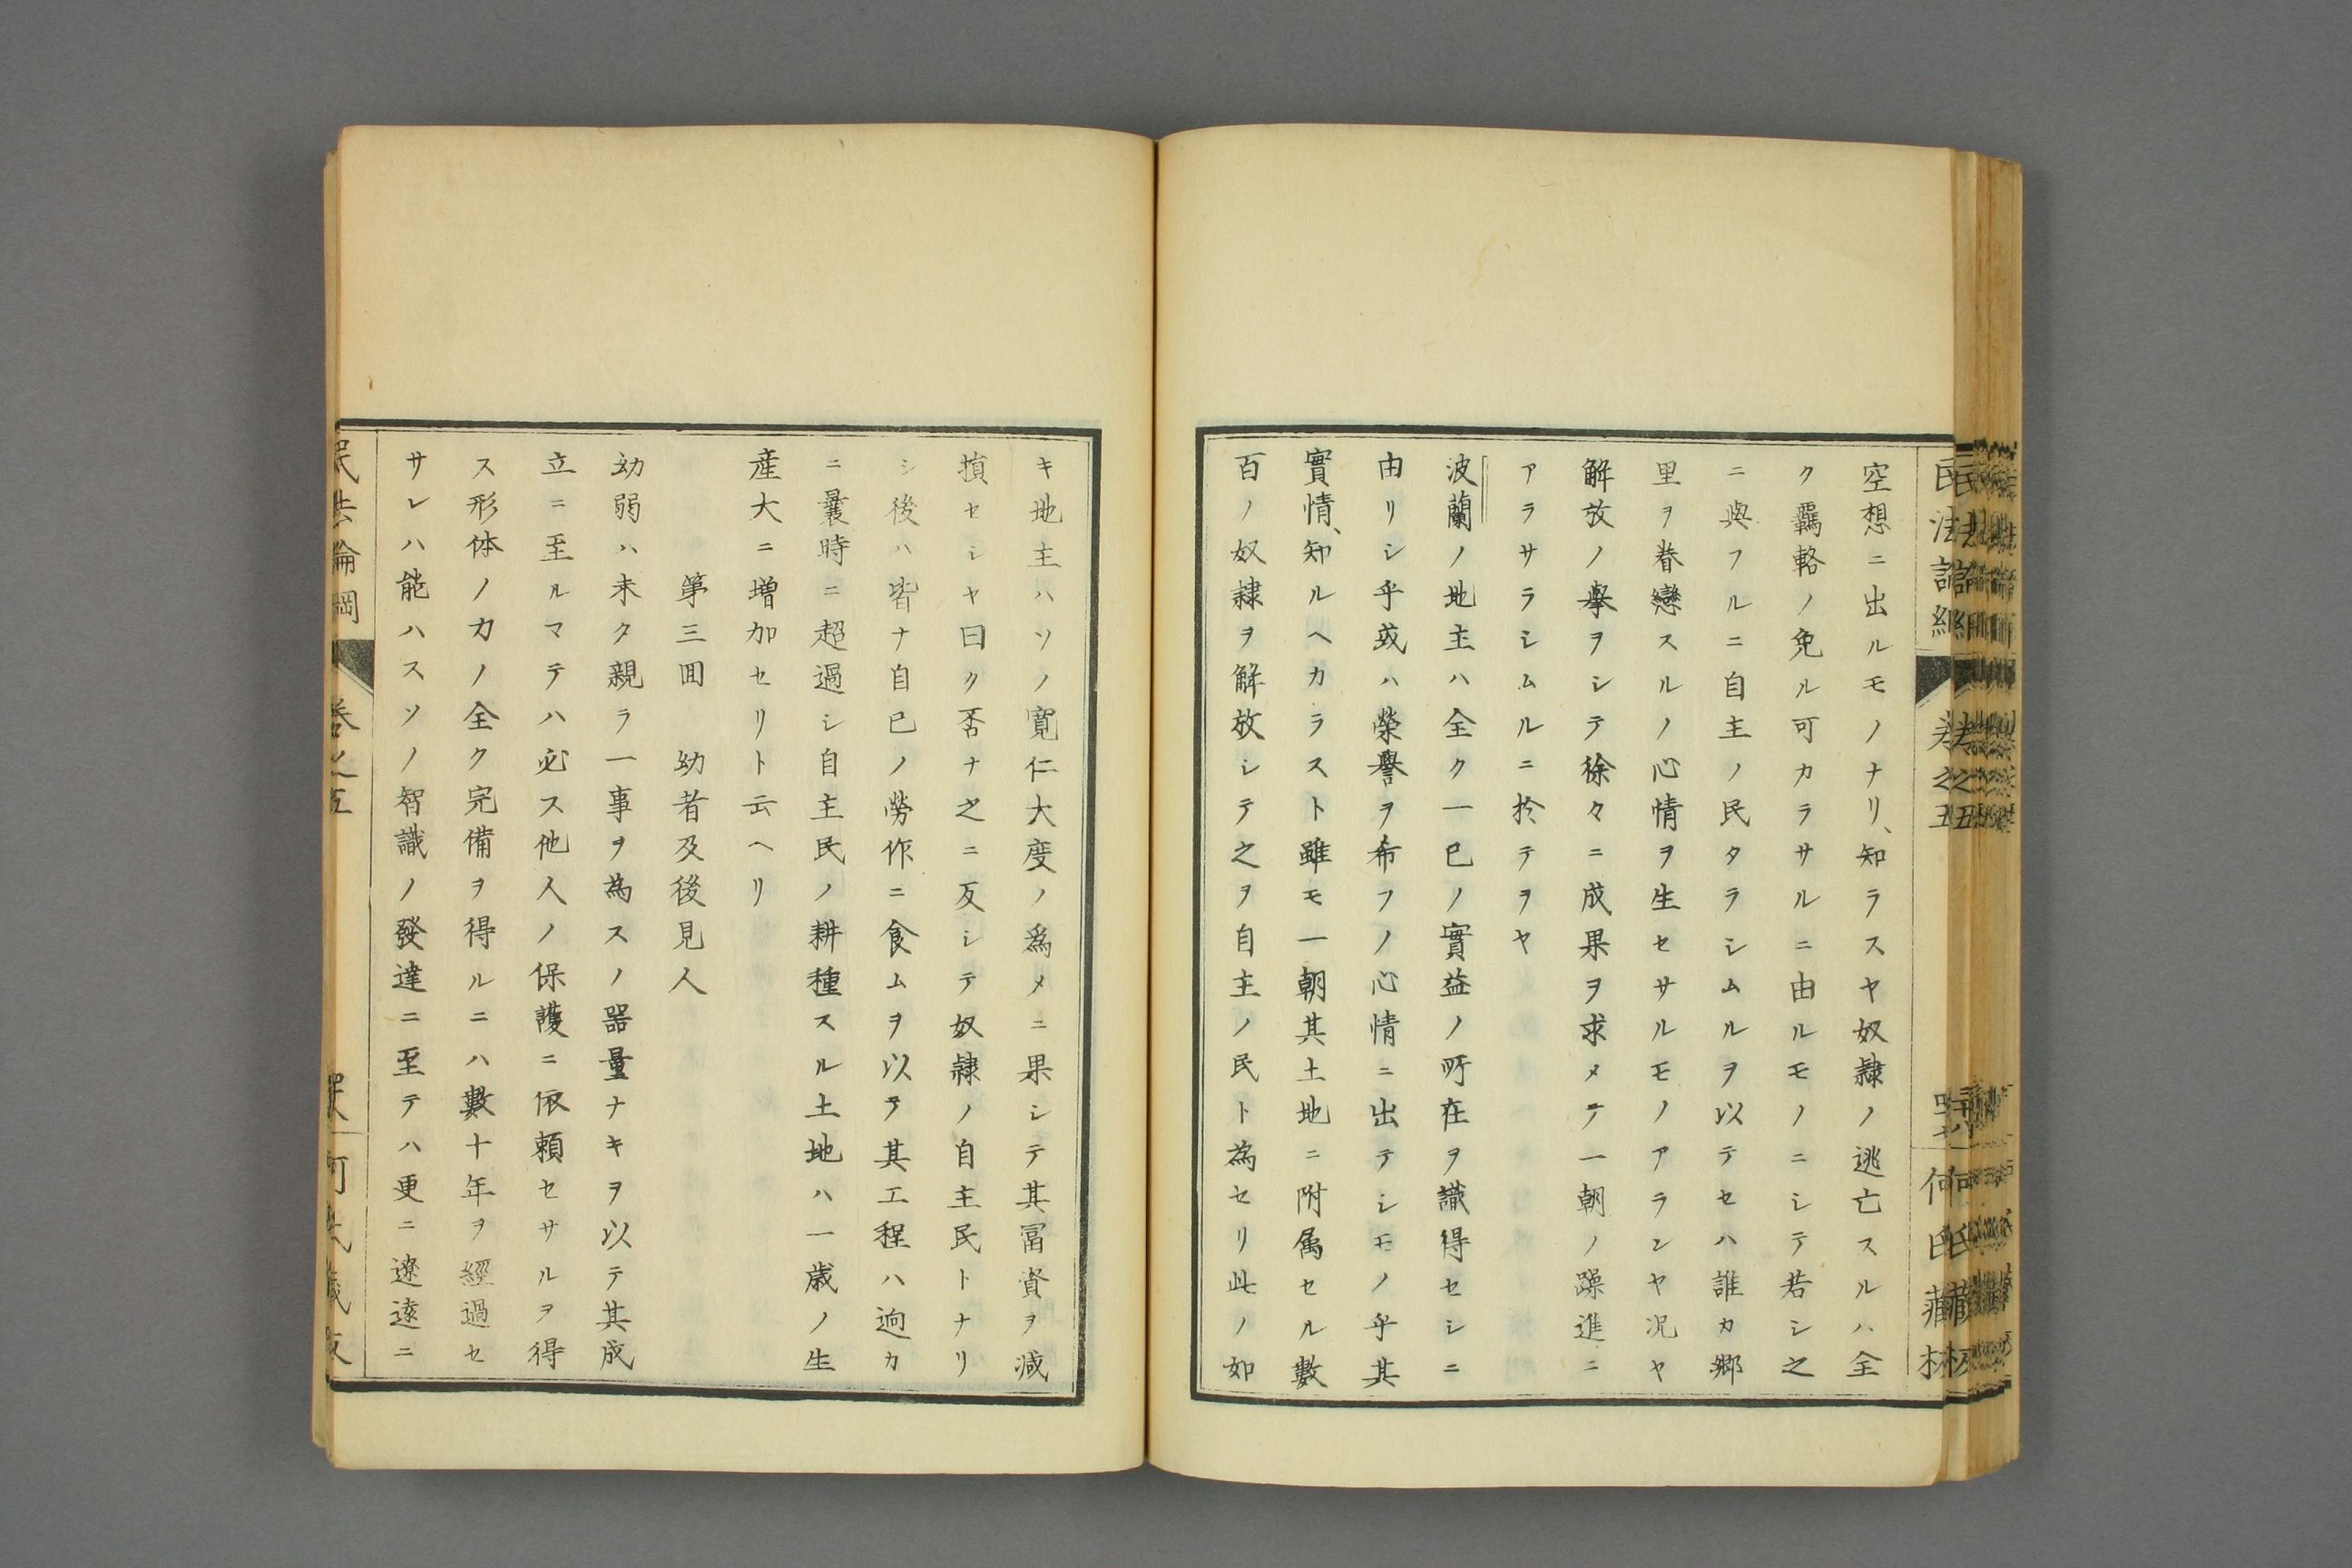 空想ニ出ルモノナリ、知ラスヤ奴隷ノ逃亡スルハ全
ク羈輅ノ免ル可カラサルニ由ルモノニシテ若シ之
ニ與フルニ自主ノ民タラシムルヲ以テセハ誰カ郷
里ヲ眷戀スルノ心情ヲ生セサルモノアランヤ况ヤ
解放ノ擧ヲシテ徐々ニ成果ヲ求メテ一朝ノ躁進ニ
アラサラシムルニ於テヲヤ
波蘭ノ地主ハ全ク一已ノ實益ノ所在ヲ識得セシニ
由リシ乎或ハ榮譽ヲ希フノ心情ニ出テシモノ乎其
實情、知ルヘカラスト雖モ一朝其土地ニ附属セル數
百ノ奴隷ヲ解放シテ之ヲ自主ノ民ト為セリ此ノ如
キ地主ハソノ寛仁大度ノ爲メニ果シテ其冨資ヲ减
損セシヤ曰ク否ナ之ニ反シテ奴隷ノ自主民トナリ
シ後ハ皆ナ自已ノ勞作ニ食ムヲ以テ其工程ハ逈カ
ニ曩時ニ超過シ自主民ノ耕種スル土地ハ一歳ノ生
産大ニ増加セリト云ヘリ
第三囬 幼者及後見人
幼弱ハ未タ親ラ一事ヲ為スノ器量ナキヲ以テ其成
立ニ至ルマテハ必ス他人ノ保護ニ依頼セサルヲ得
ス形体ノ力ノ全ク完備ヲ得ルニハ數十年ヲ經過セ
サレハ能ハスソノ智識ノ發達ニ至テハ更ニ遼遠ニ
民法論綱 卷之五